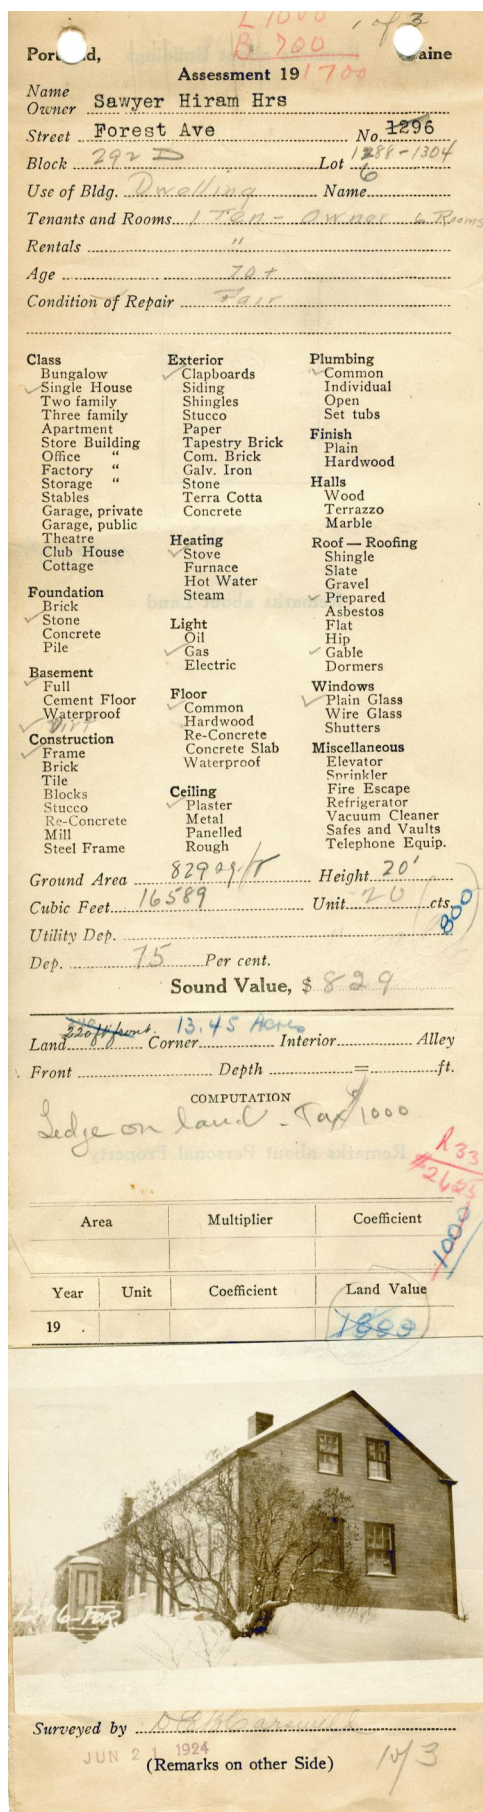 L 1000 1 of 3
Portland, B 700 Maine
Assessment 19 1700
Name
Owner Sawyer Hiram Hrs
Street Forest Ave No. 1296
1288-1304
Block 292 D Lot 6
Use of Bldg. Dwelling Name
Tenants and Rooms 1 Ten - Owner 6 Rooms
Rentals "
Age 70+
Condition of Repair Fair
Class
Bungalow
Single House
Two family
Three family
Apartment
Store Building
Office "
Factory "
Storage "
Stables
Garage, private
Garage, public
Theatre
Club House
Cottage
Foundation
Brick
Stone
Concrete
Pile
Basement
Full
Cement Floor
Waterproof
Dirt
Construction
Frame
Brick
Tile
Blocks
Stucco
Re-Concrete
Mill
Steel Frame
Exterior
Clapboards
Siding
Shingles
Stucco
Paper
Tapestry Brick
Com. Brick
Galv. Iron
Stone
Terra Cotta
Concrete
Heating
Stove
Furnace
Hot Water
Steam
Light
Oil
Gas
Electric
Floor
Common
Hardwood
Re-Concrete
Concrete Slab
Waterproof
Ceiling
Plaster
Metal
Panelled
Rough
Plumbing
Common
Individual
Open
Set tubs
Finish
Plain
Hardwood
Halls
Wood
Terrazzo
Marble
Roof — Roofing
Shingle
Slate
Gravel
Prepared
Asbestos
Flat
Hip
Gable
Dormers
Windows
Plain Glass
Wire Glass
Shutters
Miscellaneous
Elevator
Sprinkler
Fire Escape
Refrigerator
Vacuum Cleaner
Safes and Vaults
Telephone Equip.
Ground Area 829 sq. ft Height 20'
Cubic Feet 16589 Unit 20 cts.
800
Utility Dep.
Dep. 75 Per cent.
Sound Value, $ 829
220 ft front. 13.45 Acres
Land Corner Interior Alley
Front Depth = ft.
COMPUTATION
Ledge on land - Tax $1000
R 33
1000
Area Multiplier Coefficient
Year Unit Coefficient Land Value
19 .
1296-FOR.
Surveyed by Carswell
JUN 21 1924
(Remarks on other Side) 1 of 3